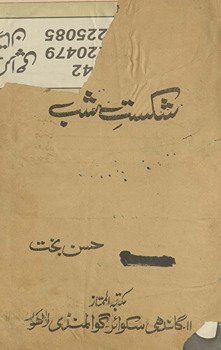 42
220479
225085
کراچی
شکستِ شب
حسن بخت
مکتبہ الممتاز
۱۱ گاندھی سکوائر گوالمنڈی لاھور